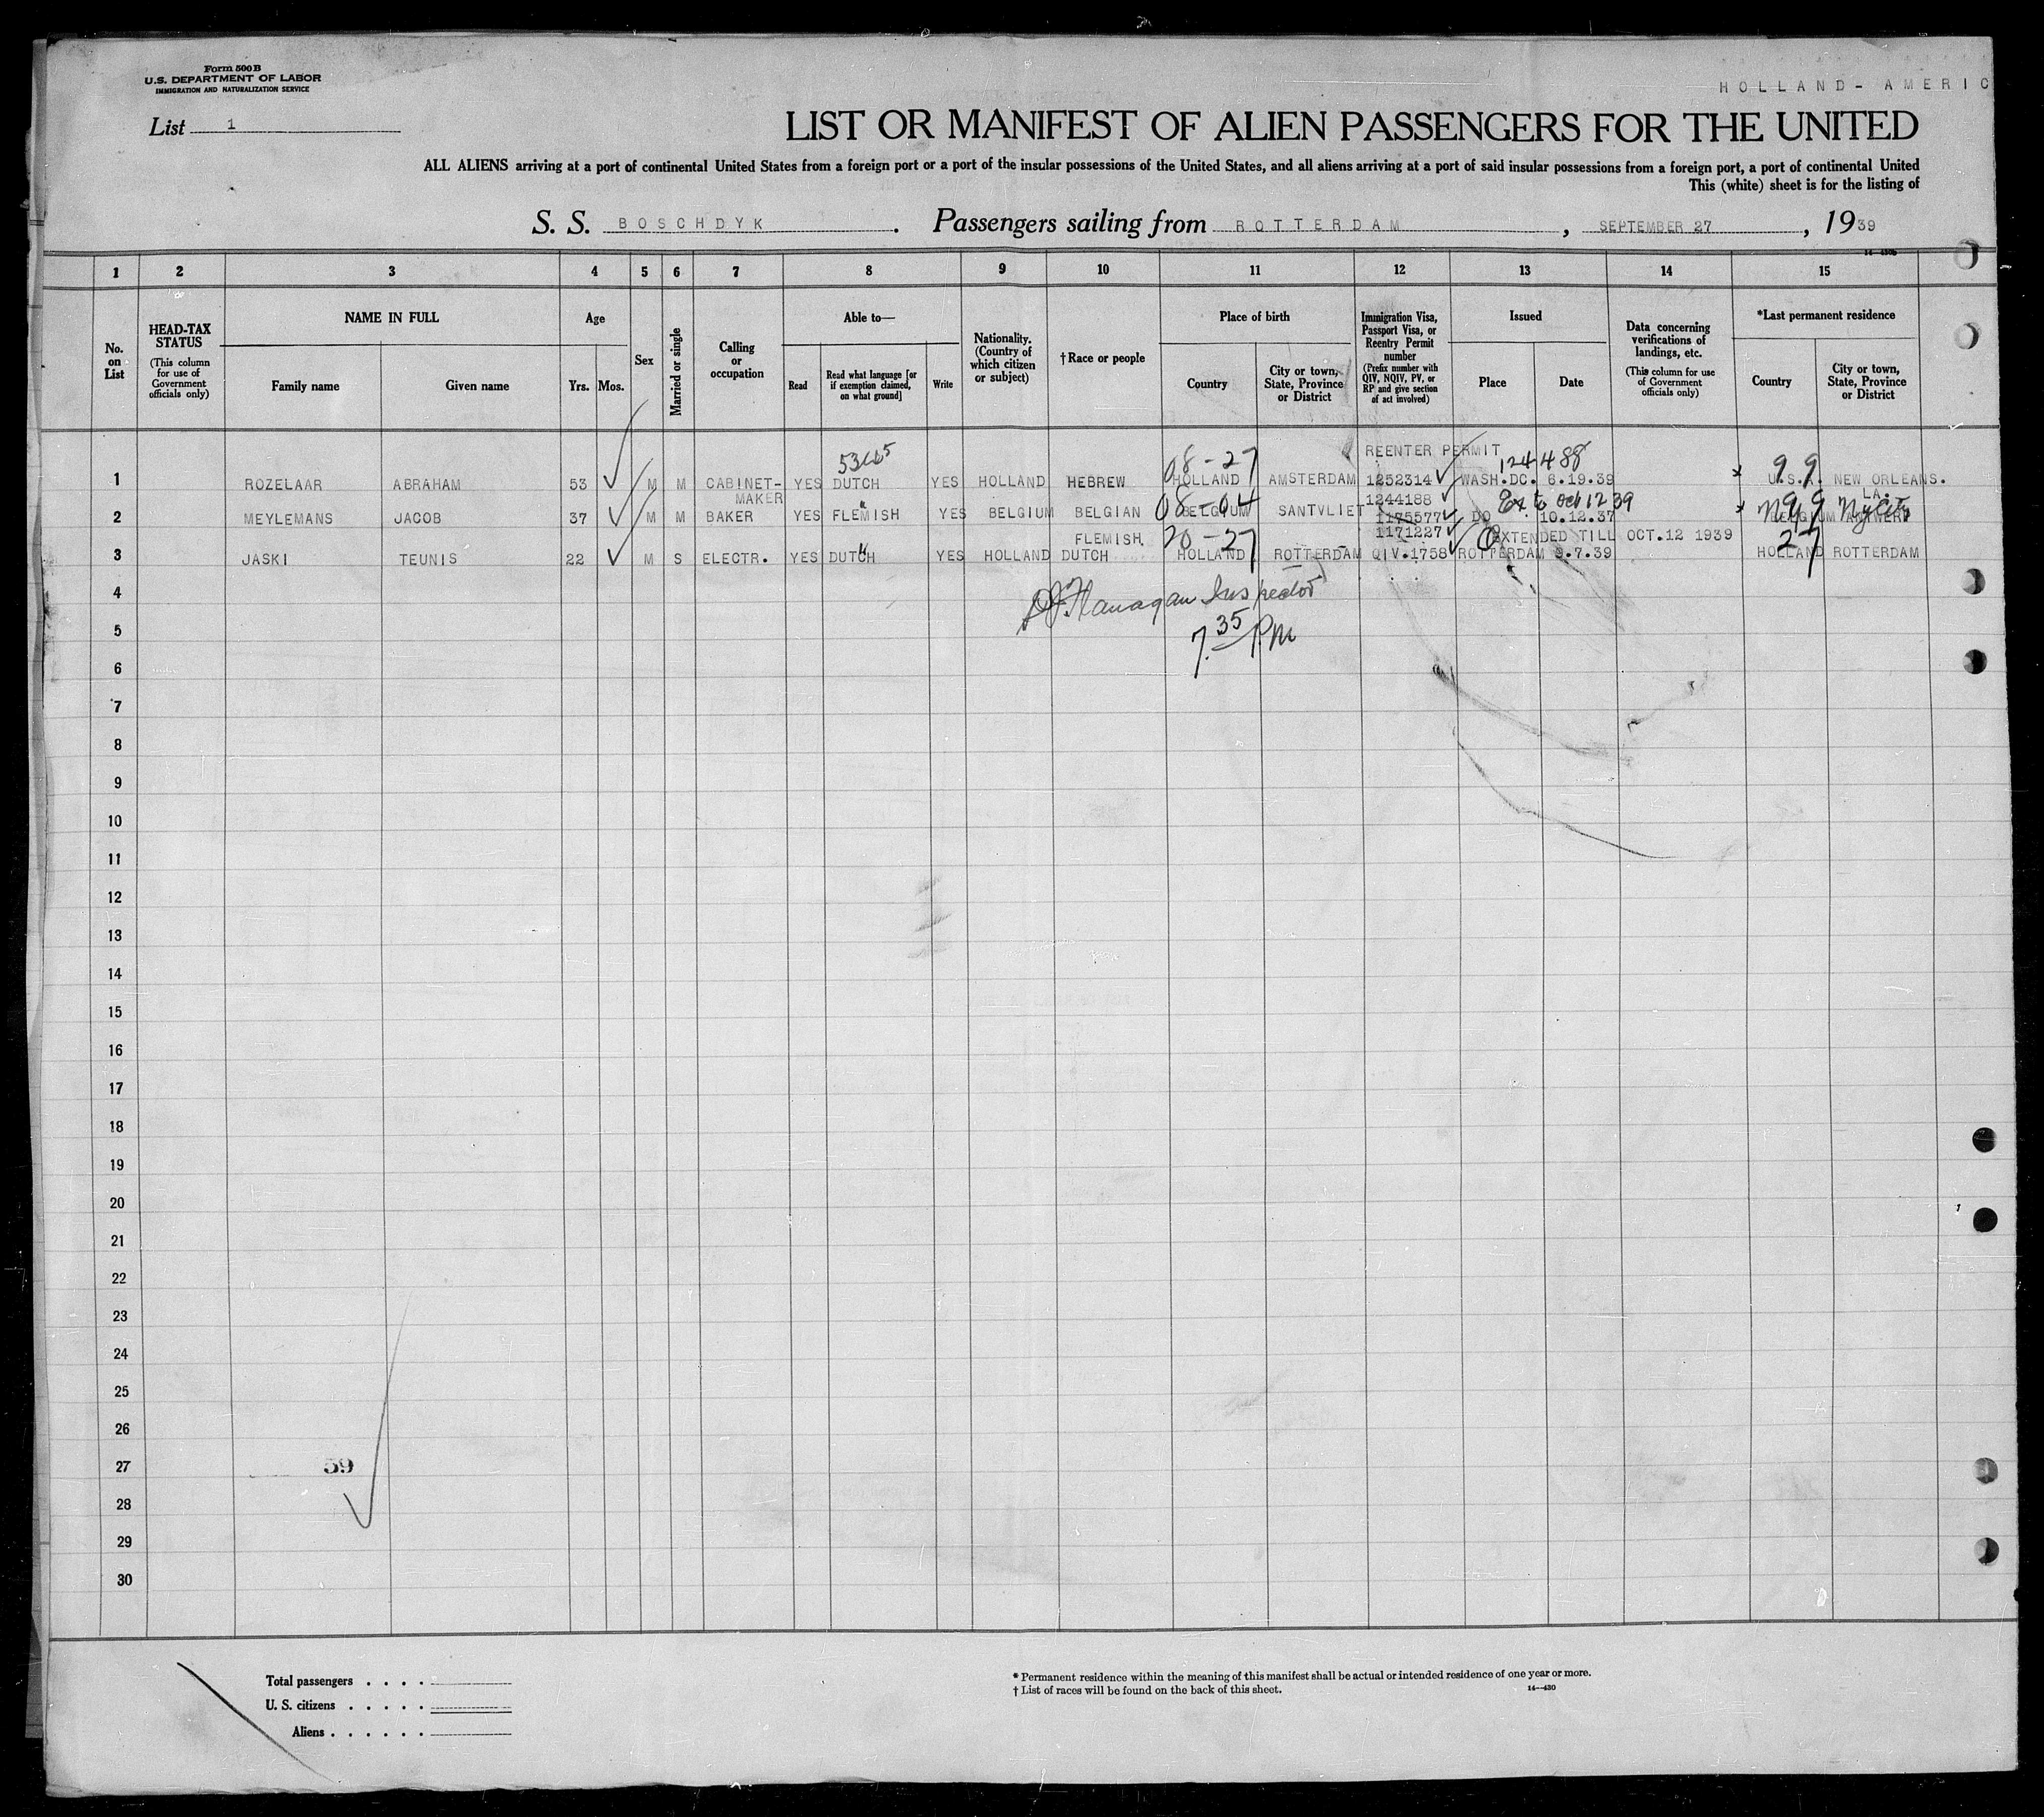 Form 500 B
U.S. DEPARTMENT OF LABOR
IMMIGRATION AND NATURALIZATION SERVICE
HOLLAND- AMERIC
List 1
LIST OR MANIFEST OF ALIEN PASSENGERS FOR THE UNITED
ALL ALIENS arriving at a port of continental United States from a foreign port or a port of the insular possessions of the United States, and all aliens arriving at a port of said insular possessions from a foreign port, a port of continental United
This (white) sheet is for the listing of
S. S. BOSCHDYK. Passengers sailing from ROTTERDAM, SEPTEMBER 27, 1939
1 2 3 4 5 6 7 8 9 10 11 12 13 14 15
No. on List
HEAD-TAX STATUS
(This column for use of Government officials only)
NAME IN FULL
Family name
Given name
Age
Yrs. Mos.
Sex
Married or single
Calling or occupation
Able to—
Read
Read what language [or if exemption claimed, on what ground]
Write
Nationality. (Country of which citizen or subject)
† Race or people
Place of birth
Country
City or town, State, Province or District
Immigration Visa, Passport Visa, or Reentry Permit number
(Prefix number with QIV, NQIV, PV, or RP and give section of act involved)
Issued
Place
Date
Data concerning verifications of landings, etc.
(This column for use of Government officials only)
*Last permanent residence
Country
City or town, State, Province or District
REENTER PERMIT
08-27 124488 99
1 ROZELAAR ABRAHAM 53 M M CABINET-MAKER YES DUTCH YES HOLLAND HEBREW HOLLAND AMSTERDAM 1252314 WASH.DC. 6.19.39 U.S.A. NEW ORLEANS. LA.
1244188 Ex. to Oct 12 39
08-04 99 NYCity
2 MEYLEMANS JACOB 37 M M BAKER YES FLEMISH YES BELGIUM BELGIAN FLEMISH BELGIUM SANTVLIET 1175577 DO 10.12.37 BELGIUM ANTWERP
1171227 EXTENDED TILL OCT.12 1939
20-27 27
3 JASKI TEUNIS 22 M S ELECTR. YES DUTCH YES HOLLAND DUTCH HOLLAND ROTTERDAM QIV.1758 ROTTERDAM 9.7.39 HOLLAND ROTTERDAM
4
Flanagan Inspector
5
7.35 P.M
6
7
8
9
10
11
12
13
14
15
16
17
18
19
20
21
22
23
24
25
26
27
59
28
29
30
Total passengers . . . .
U. S. citizens . . . . .
Aliens . . . . . .
* Permanent residence within the meaning of this manifest shall be actual or intended residence of one year or more.
† List of races will be found on the back of this sheet.
14—430